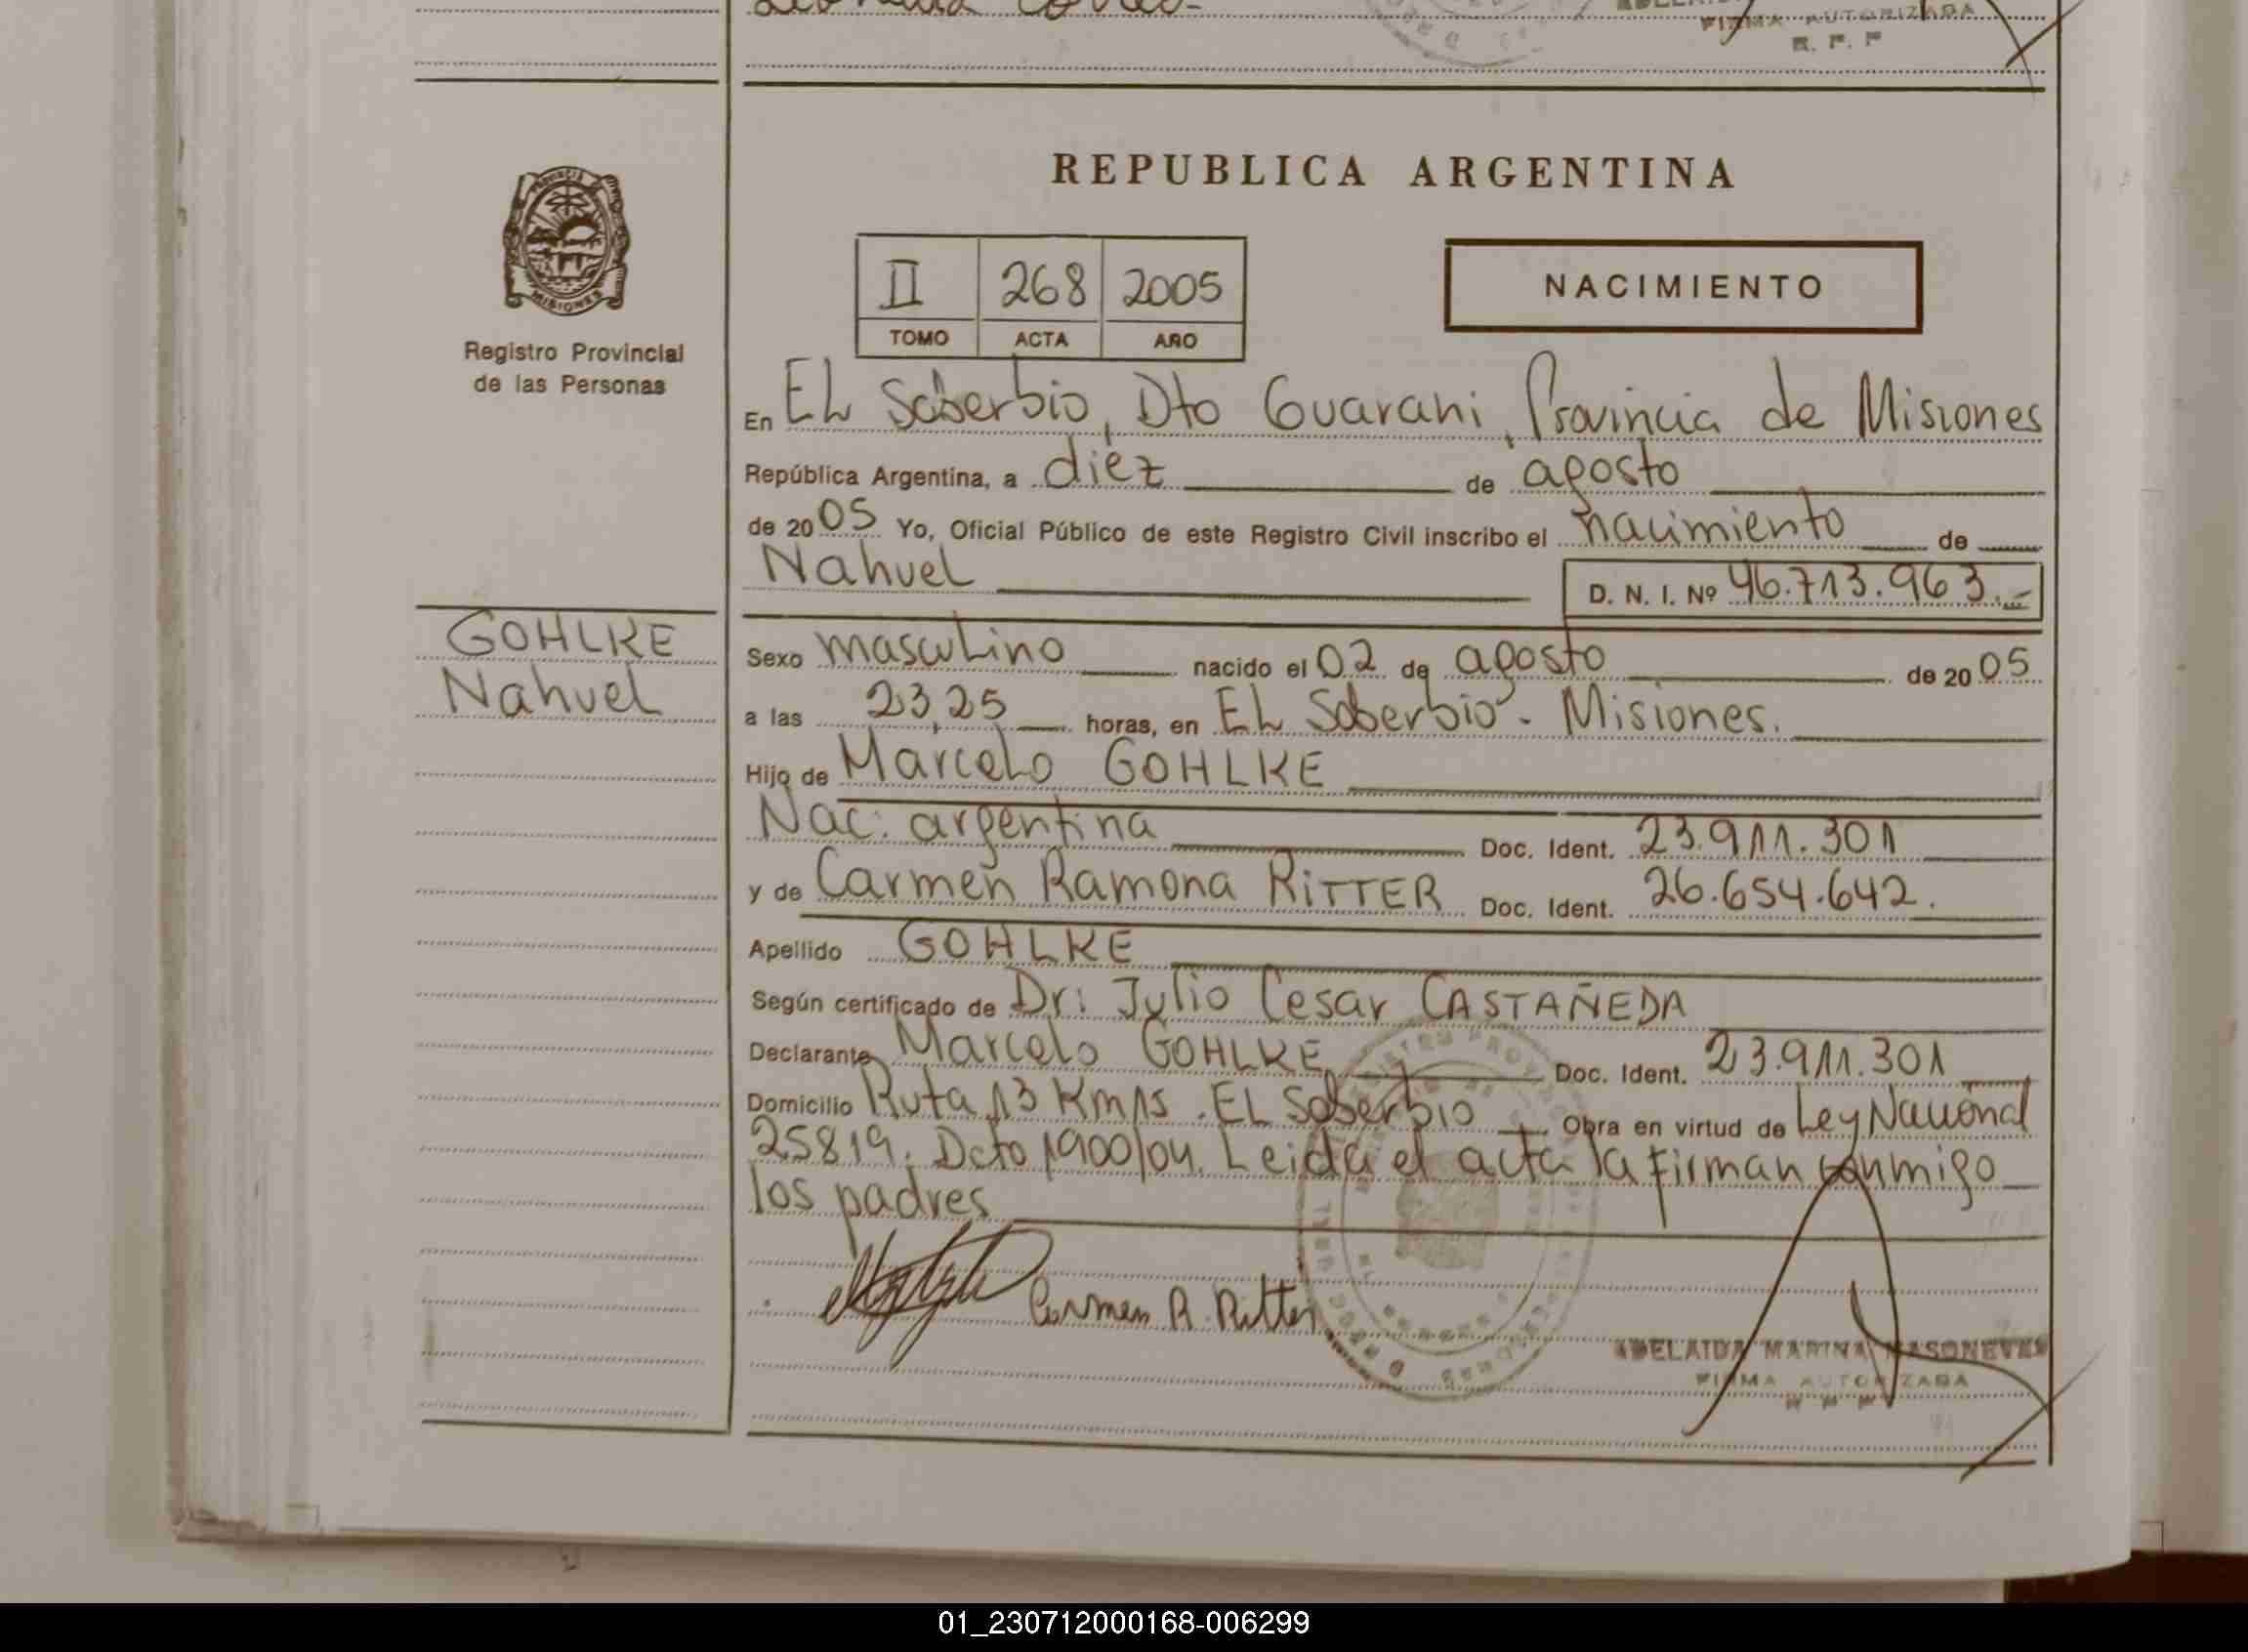 FIRMA AUTORIZADA
R. P. P
REPUBLICA ARGENTINA
PROVINCIA
MISIONES
Registro Provincial
de las Personas
II 268 2005
TOMO ACTA AÑO
NACIMIENTO
En EL Soberbio, Dto Guarani, Provincia de Misiones
República Argentina, a diez de agosto
de 2005 Yo, Oficial Público de este Registro Civil inscribo el nacimiento de
Nahuel D. N. I. Nº 46.713.963.-
GOHLKE
Nahuel
Sexo masculino nacido el 02 de agosto de 2005
a las 23,25 horas, en EL Soberbio - Misiones.
Hijo de Marcelo GOHLKE
Nac. argentina Doc. Ident. 23.911.301
y de Carmen Ramona RITTER Doc. Ident. 26.654.642.
Apellido GOHLKE
Según certificado de Dr: Julio Cesar CASTAÑEDA
Declarante Marcelo GOHLKE Doc. Ident. 23.911.301
Domicilio Ruta 13 Km 15. EL Soberbio Obra en virtud de Ley Nacional
25819. Dcto 1900/04. Leida el acta la firman conmigo
los padres
Carmen R. Ritter
ADELAIDA MARINA
FIRMA AUTORIZADA
01_230712000168-006299